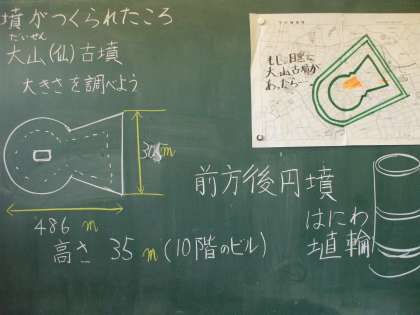 墳がつくられたころ
だいせん
大山(仙)古墳
大きさを調べよう
もし、目黒に
大山古墳が
あったら…
m
486 m
高さ 35 m (10階のビル)
前方後円墳
はにわ
埴輪